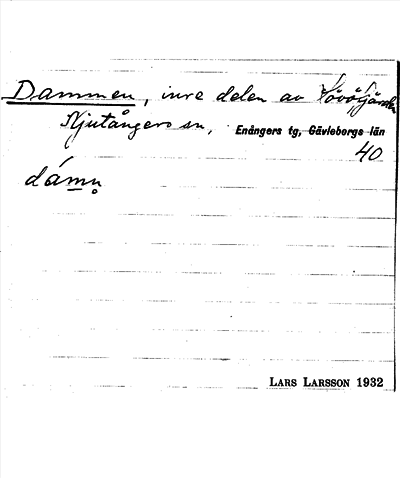 Dammen, inre delen av
Njutångers sn, Enångers tg, Gävleborgs län
40
dámn̥
LARS LARSSON 1932